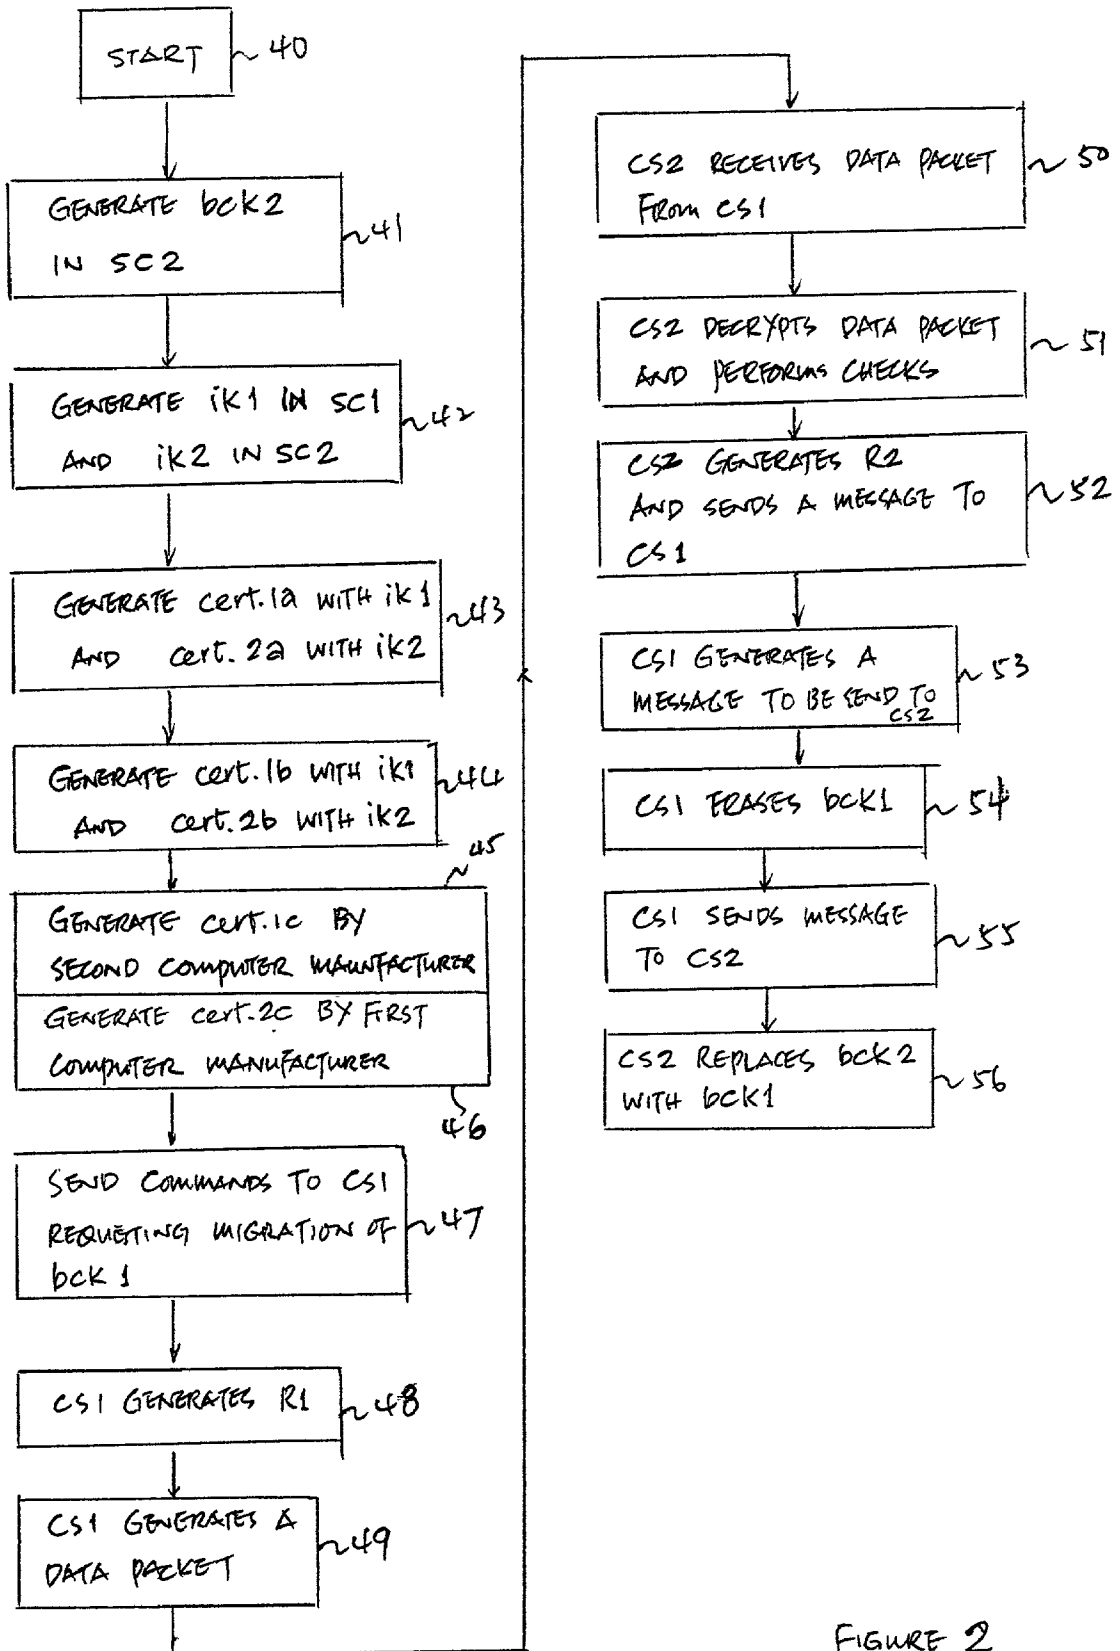 START
~ 40
GENERATE bck2
IN SC2
~41
GENERATE ik1 IN SC1
AND ik2 IN SC2
~42
GENERATE cert.1a WITH ik1
AND cert.2a WITH ik2
~43
GENERATE cert.1b WITH ik1
AND cert.2b WITH ik2
~44
~45
GENERATE cert.1c BY
SECOND COMPUTER MAUNFACTURER
GENERATE cert.2c BY FIRST
COMPUTER MANUFACTURER
46
SEND COMMANDS TO CS1
REQUETING MIGRATION OF
bck 1
~47
CS1 GENERATES R1
~48
CS1 GENERATES A
DATA PACKET
~49
CS2 RECEIVES DATA PACKET
FROM CS1
~ 50
CS2 DECRYPTS DATA PACKET
AND PERFORMS CHECKS
~ 51
CS2 GENERATES R2
AND SENDS A MESSAGE TO
CS1
~52
CS1 GENERATES A
MESSAGE TO BE SEND TO
CS2
~ 53
CS1 ERASES bck1
~ 54
CS1 SENDS MESSAGE
TO CS2
~ 55
CS2 REPLACES bck2
WITH bck1
~ 56
FIGURE 2